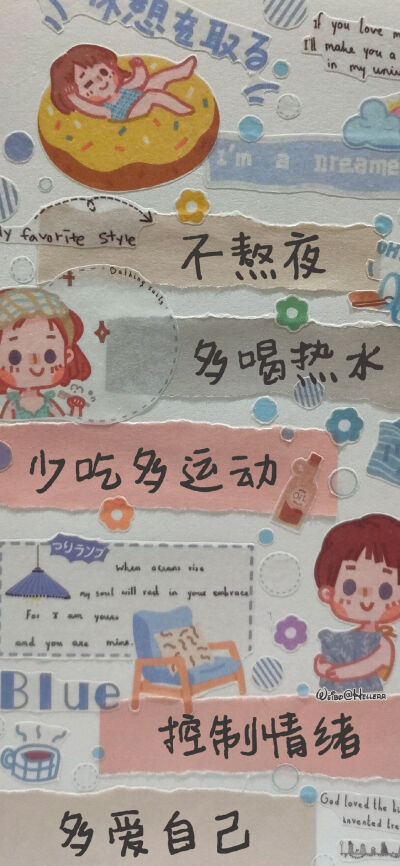 休想を取る
If you love m
I'll make you a
in my uni
I'm a Dreame
My favorite style
不熬夜
多喝热水
少吃多运动
つりランプ
When oceans rise
my soul will rest in your embrace
For I am yours
and you are mine.
Blue
Weibo@Hellerr
控制情绪
God loved the bi
invented tre
多爱自己